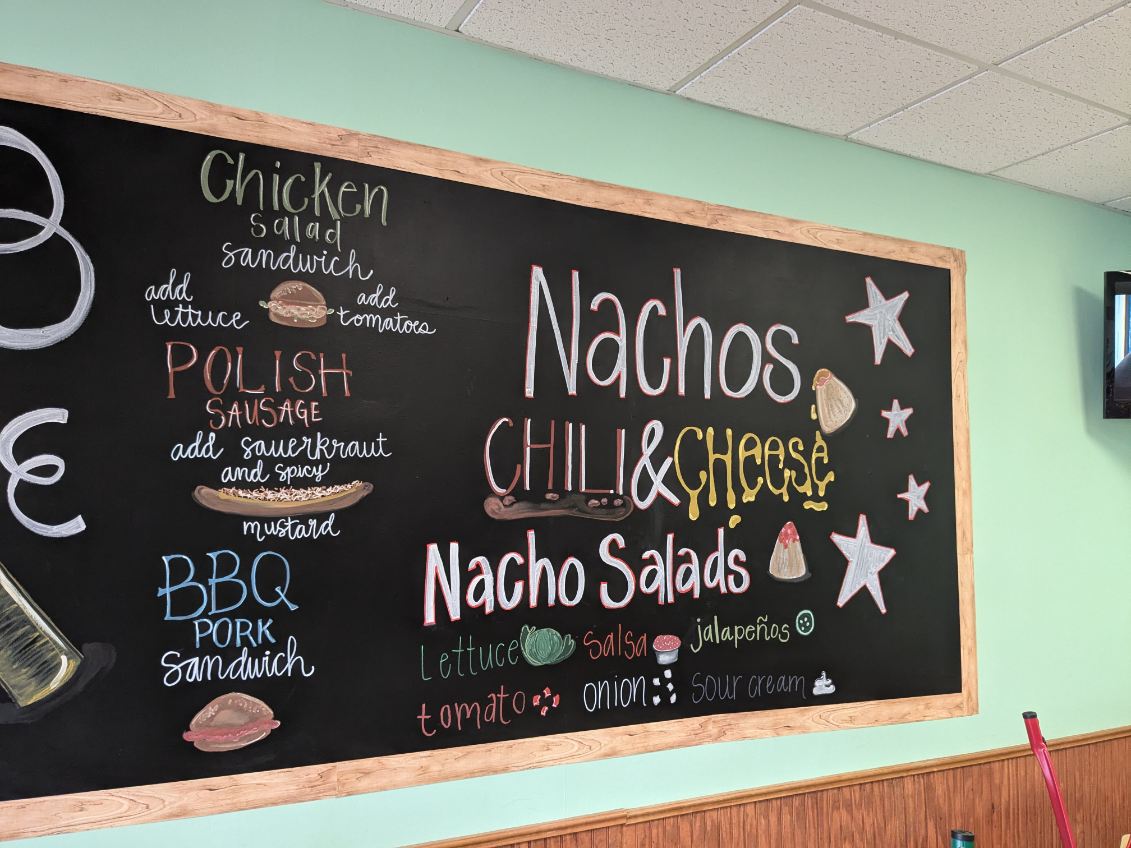 Chicken
salad
sandwich
add
lettuce
add
tomatoes
POLISH
SAUSAGE
add sauerkraut
and spicy
mustard
BBQ
PORK
sandwich
Nachos
CHILI & CHeese
Nacho Salads
Lettuce salsa jalapeños
tomato onion sour cream